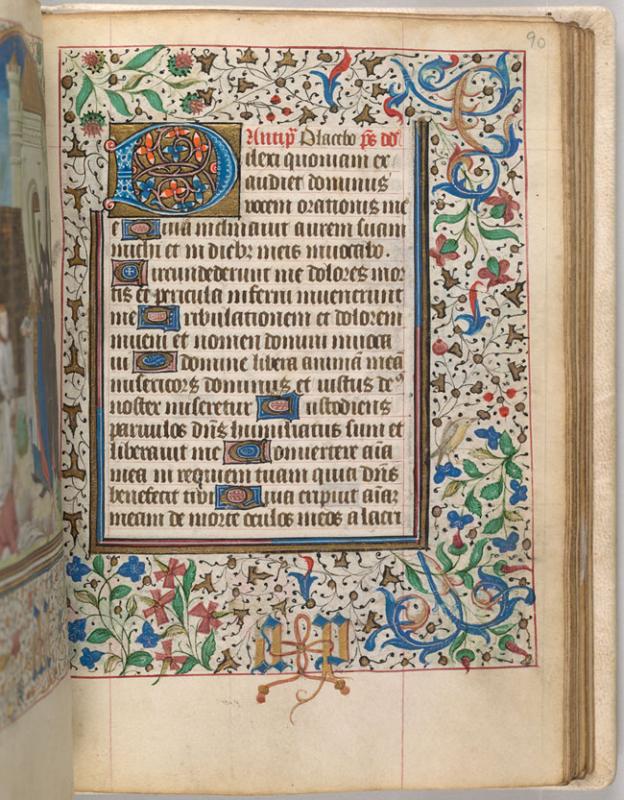 90
Antip̃ Placebo p̃s dd̃
Dilexi quoniam ex
audiet dominus
vocem orationis me
e Quia inclinauit aurem suam
michi et in diebꝫ meis inuocabo.
Circumdederunt me dolores mor
tis et pericula inferni inuenerunt
me Tribulationem et dolorem
inueni et nomen domini inuoca
ui O domine libera animã meã
misericors dominus et iustus deꝰ
noster miseretur Custodiens
paruulos dñs humiliatus sum et
liberauit me Conuertere aĩa
mea in requiem tuam quia dñs
benefecit tibi Quia eripuit aĩaꝫ
meam de morte oculos meos a lacri
a p